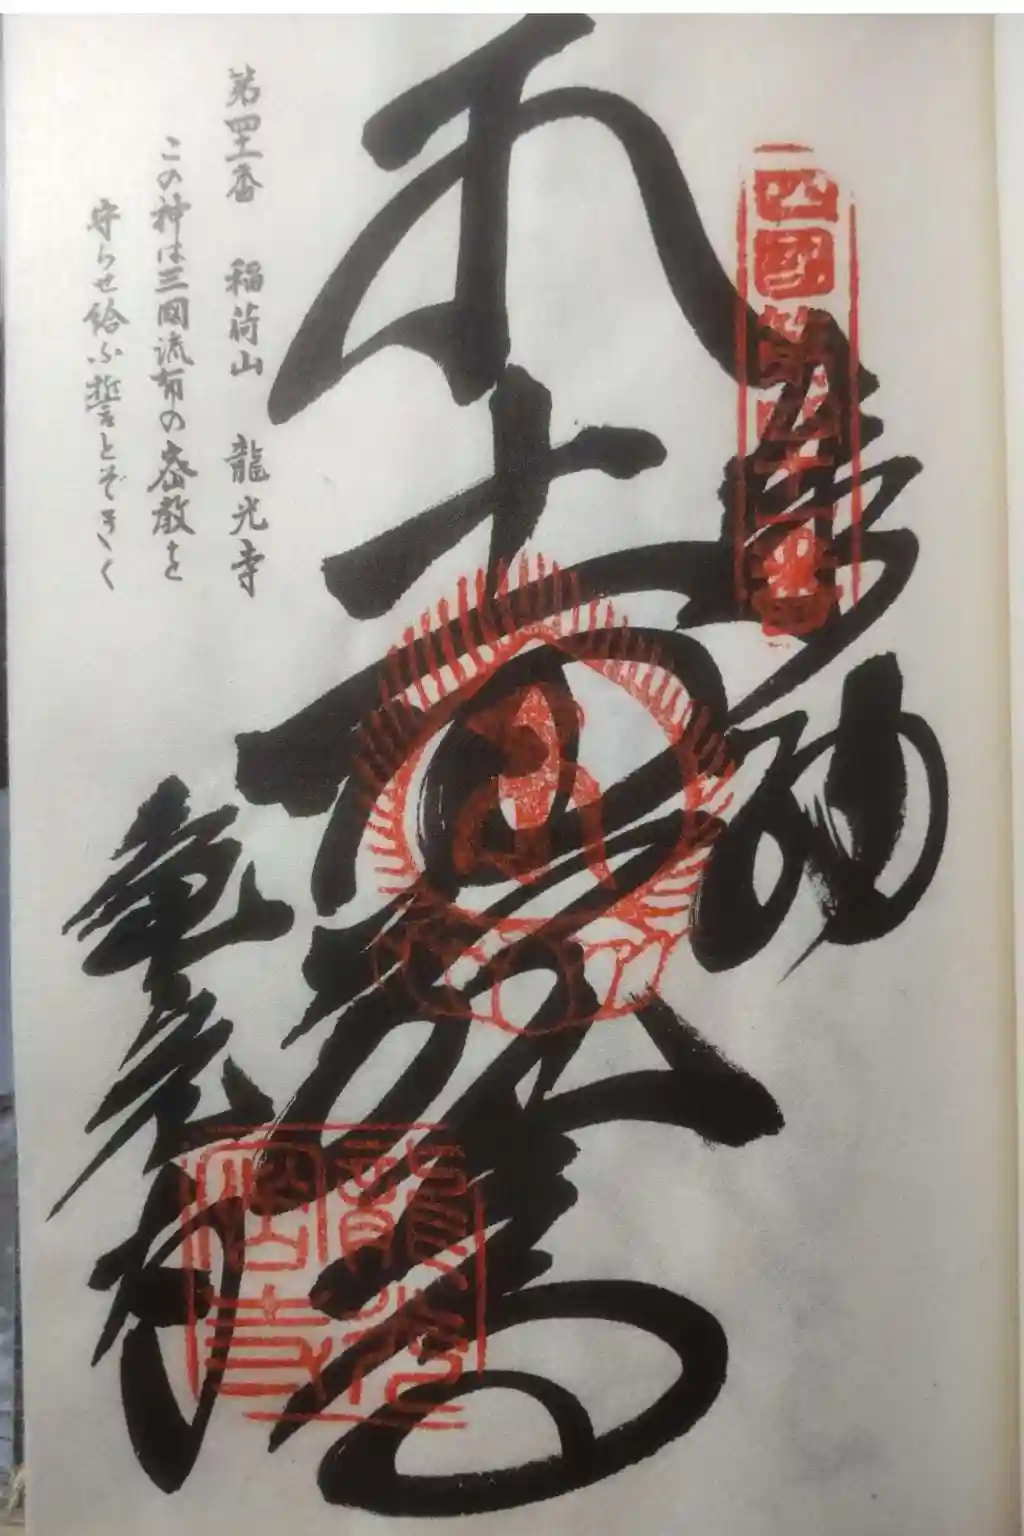 四國第四十一番
奉納
本十一面大悲殿
龍光寺
龍光寺
第四十一番 稲荷山 龍光寺
この神は三國流布の密教を
守らせ給ふ誓とぞきく